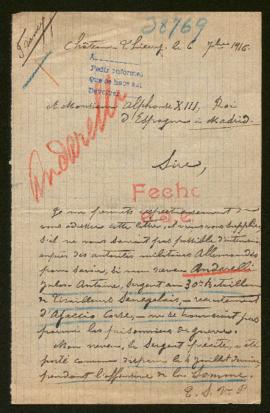 28769
France
Château Thierry, le 6 7bre 1916.
A
Pedir informes
que se hace así
Devolver
A Monsieur Alphonse XIII, Roi
d'Espagne à Madrid.
Andarelli
Sire,
Fecho
Je me permets respectueusement de
vous adresser cette lettre, et vous supplier
s'il ne vous serait pas possible d'intervenir
auprès des autorités militaires Allemandes
pour savoir, si mon neveu Andarelli
Jules Antoine, Sergent au 30e Bataillon
de Tirailleurs Sénégalais, recrutement
d'Ajaccio Corse, ne se trouverait pas
parmi les prisonniers de guerre.
Mon neveu, le Sergent précité, a été
porté comme disparu le 4 Juillet dernier,
pendant l'offensive de la Somme.
T. S. V. P.